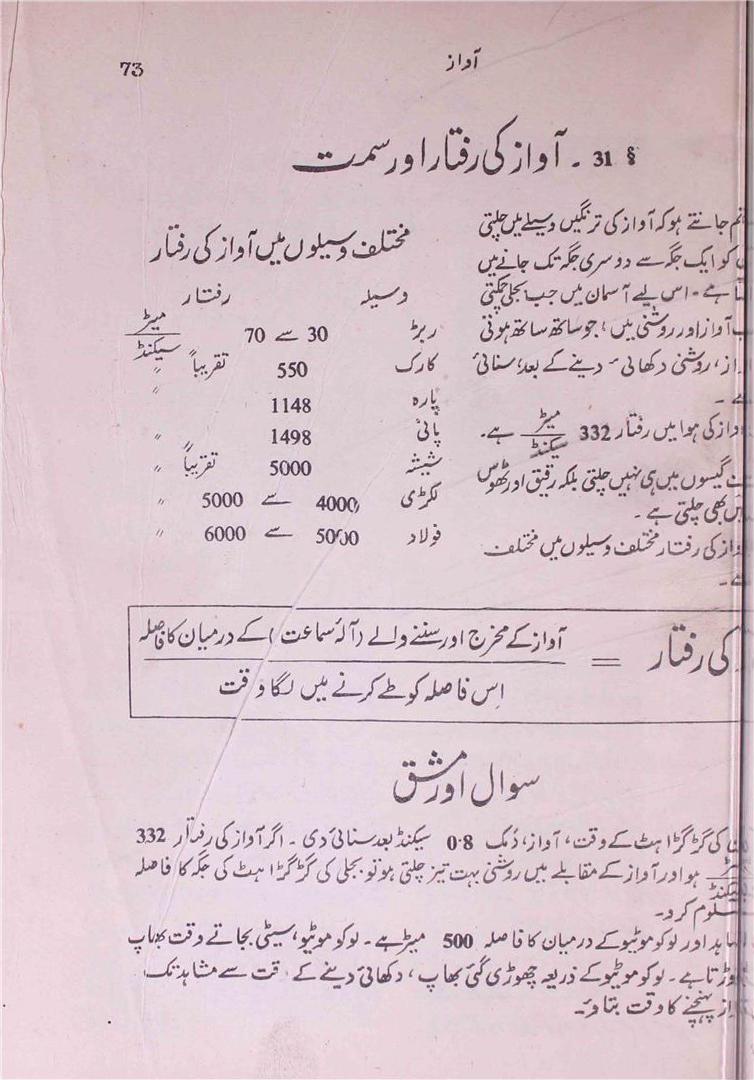 آواز
73
§ 31 ۔ آواز کی رفتار اور سمت
تم جانتے ہو کہ آواز کی ترنگیں وسیلے میں چلتی
کو ایک جگہ سے دوسری جگہ تک جانے میں
ہے ۔ اس لیے آسمان میں جب بجلی چمکتی
آواز اور روشنی میں، جو ساتھ ساتھ ہوتی
روشنی دکھائی دینے کے بعد، سنائی
ہے ۔
آواز کی ہوا میں رفتار 332 میٹر / سیکنڈ ہے ۔
گیسوں میں ہی نہیں چلتی بلکہ رقیق اور ٹھوس
بھی چلتی ہے ۔
آواز کی رفتار مختلف وسیلوں میں مختلف
ہے ۔
مختلف وسیلوں میں آواز کی رفتار
وسیلہ رفتار
ربڑ 30 سے 70 میٹر / سیکنڈ
کارک 550 تقریباً 〃
پارہ 1148 〃
پانی 1498 〃
شیشہ 5000 تقریباً 〃
لکڑی 4000 سے 5000 〃
فولاد 5000 سے 6000 〃
کی رفتار = آواز کے مخرج اور سننے والے (آلۂ سماعت) کے درمیان کا فاصلہ
اِس فاصلہ کو طے کرنے میں لگا وقت
سوال اور مشق
کی گڑگڑاہٹ کے وقت، آواز، دُمک 0·8 سیکنڈ بعد سنائی دی ۔ اگر آواز کی رفتار 332
میٹر / سیکنڈ ہو اور آواز کے مقابلے میں روشنی بہت تیز چلتی ہو تو بجلی کی گڑگڑاہٹ کی جگہ کا فاصلہ
معلوم کرو ۔
اور لوکوموٹیو کے درمیان کا فاصلہ 500 میٹر ہے ۔ لوکوموٹیو، سیٹی بجاتے وقت بھاپ
چھوڑتا ہے ۔ لوکوموٹیو کے ذریعہ چھوڑی گئی بھاپ، دکھائی دینے کے وقت سے مشاہد تک
آواز پہنچنے کا وقت بتاؤ ۔